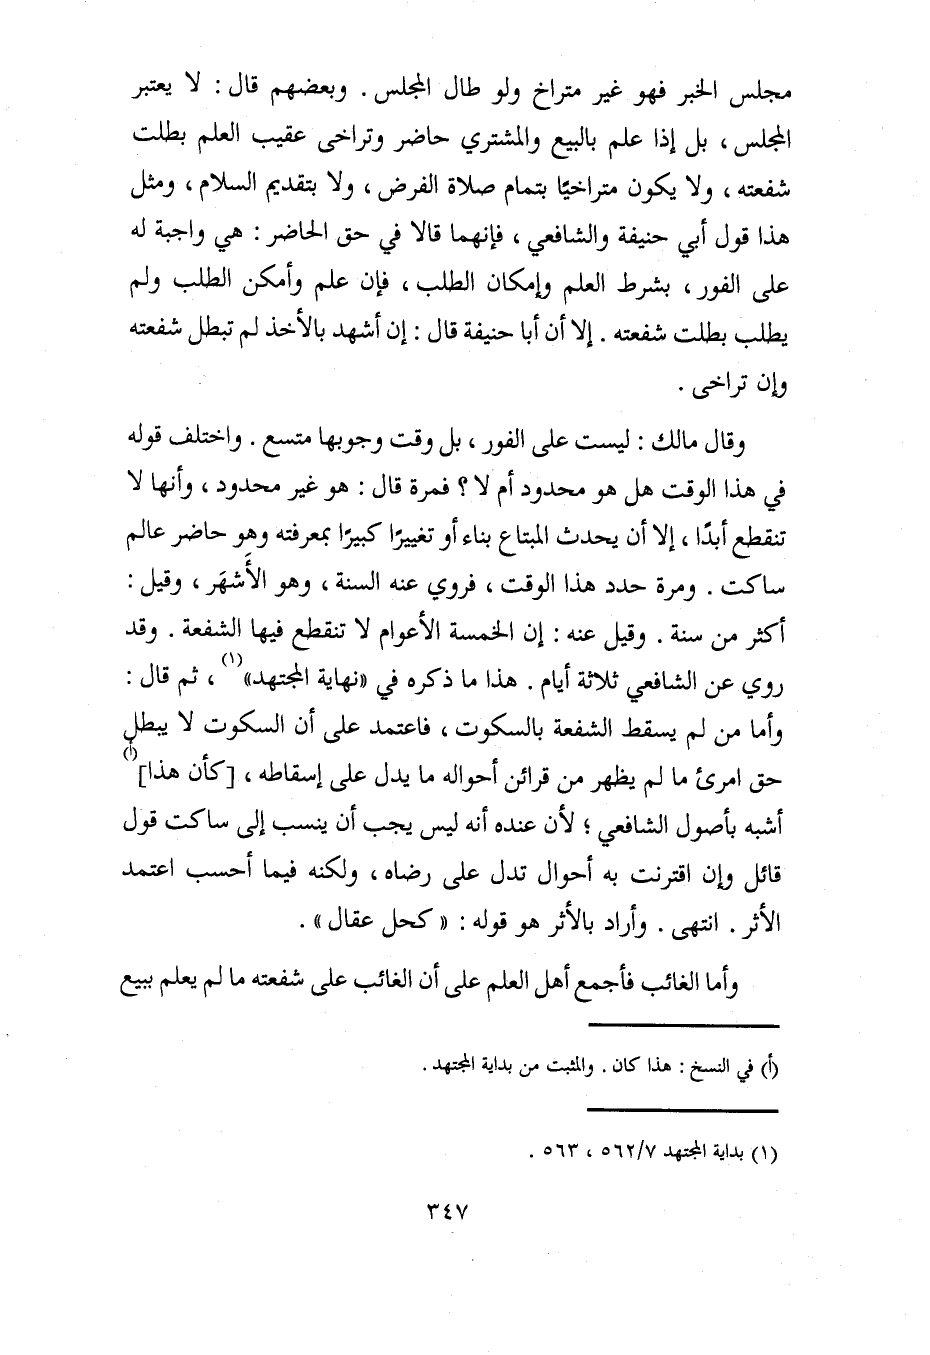 مجلس الخبر فهو غير متراخ ولو طال المجلس . وبعضهم قال : لا يعتبر
المجلس ، بل إذا علم بالبيع والمشتري حاضر وتراخى عقيب العلم بطلت
شفعته ، ولا يكون متراخيًا بتمام صلاة الفرض ، ولا بتقديم السلام ، ومثل
هذا قول أبي حنيفة والشافعي ، فإنهما قالا في حق الحاضر : هي واجبة له
على الفور ، بشرط العلم وإمكان الطلب ، فإن علم وأمكن الطلب ولم
يطلب بطلت شفعته . إلا أن أبا حنيفة قال : إن أشهد بالأخذ لم تبطل شفعته
وإن تراخى .
وقال مالك : ليست على الفور ، بل وقت وجوبها متسع . واختلف قوله
في هذا الوقت هل هو محدود أم لا ؟ فمرة قال : هو غير محدود ، وأنها لا
تنقطع أبدًا ، إلا أن يحدث المبتاع بناء أو تغييرًا كبيرًا بمعرفته وهو حاضر عالم
ساكت . ومرة حدد هذا الوقت ، فروي عنه السنة ، وهو الأَشهَر ، وقيل :
أكثر من سنة . وقيل عنه : إن الخمسة الأعوام لا تنقطع فيها الشفعة . وقد
روي عن الشافعي ثلاثة أيام . هذا ما ذكره في «نهاية المجتهد»(١) ، ثم قال :
وأما من لم يسقط الشفعة بالسكوت ، فاعتمد على أن السكوت لا يبطل
حق امرئ ما لم يظهر من قرائن أحواله ما يدل على إسقاطه ، [كأن هذا](أ)
أشبه بأصول الشافعي ؛ لأن عنده أنه ليس يجب أن ينسب إلى ساكت قول
قائل وإن اقترنت به أحوال تدل على رضاه ، ولكنه فيما أحسب اعتمد
الأثر . انتهى . وأراد بالأثر هو قوله : « كحل عقال » .
وأما الغائب فأجمع أهل العلم على أن الغائب على شفعته ما لم يعلم ببيع
(أ) في النسخ : هذا كان . والمثبت من بداية المجتهد .
(١) بداية المجتهد ٥٦٢/٧ ، ٥٦٣ .
٣٤٧